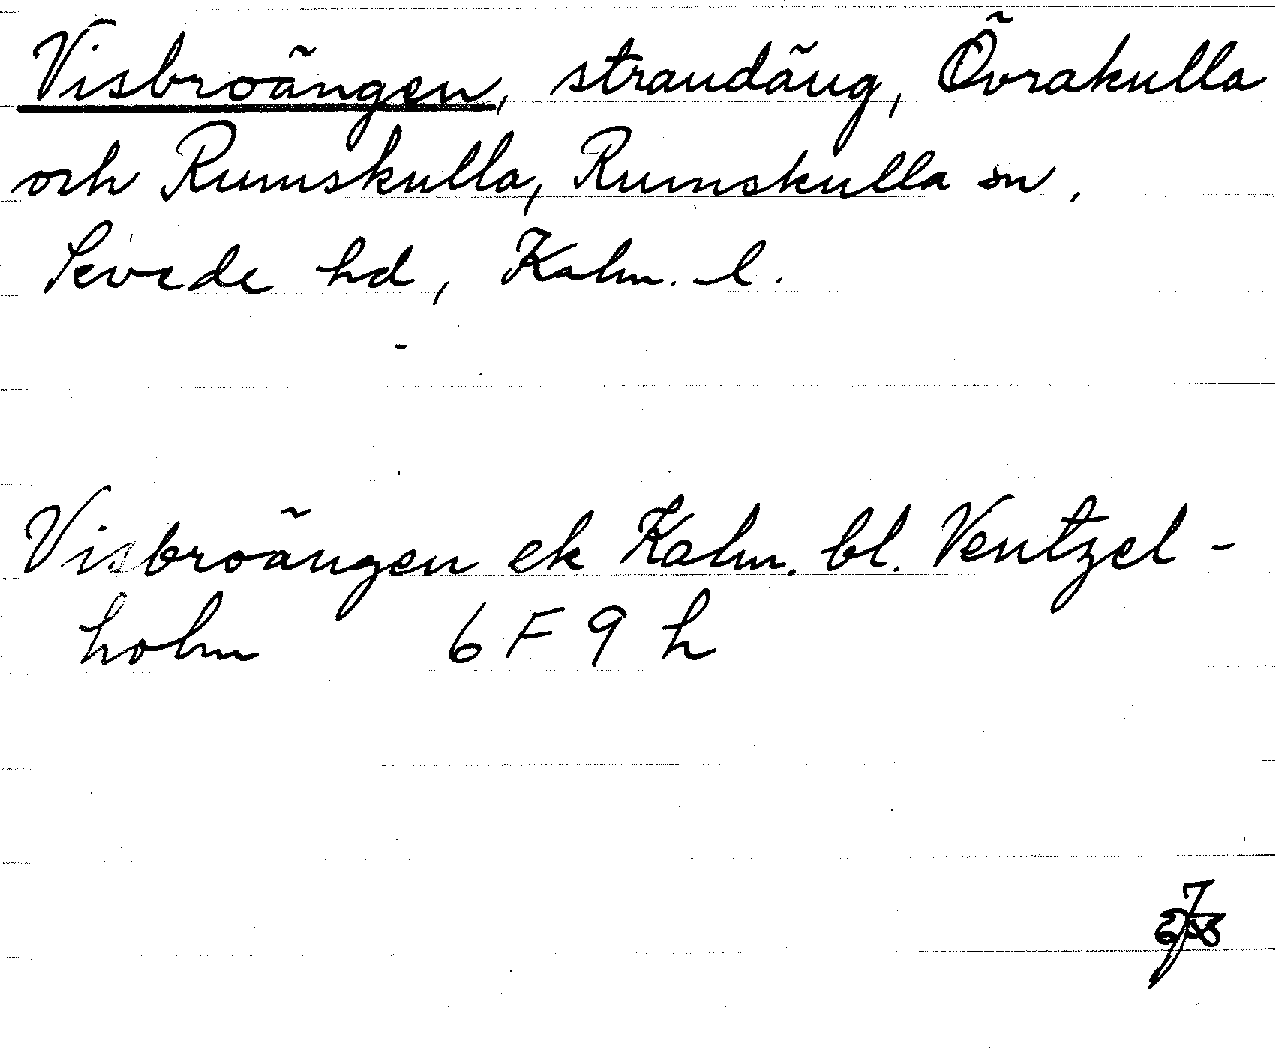 Visbroängen, strandäng, Övrakulla
och Rumskulla, Rumskulla sn,
Sevede hd, Kalm. l.
Visbroängen ek Kalm. bl. Ventzel-
holm 6 F 9 h